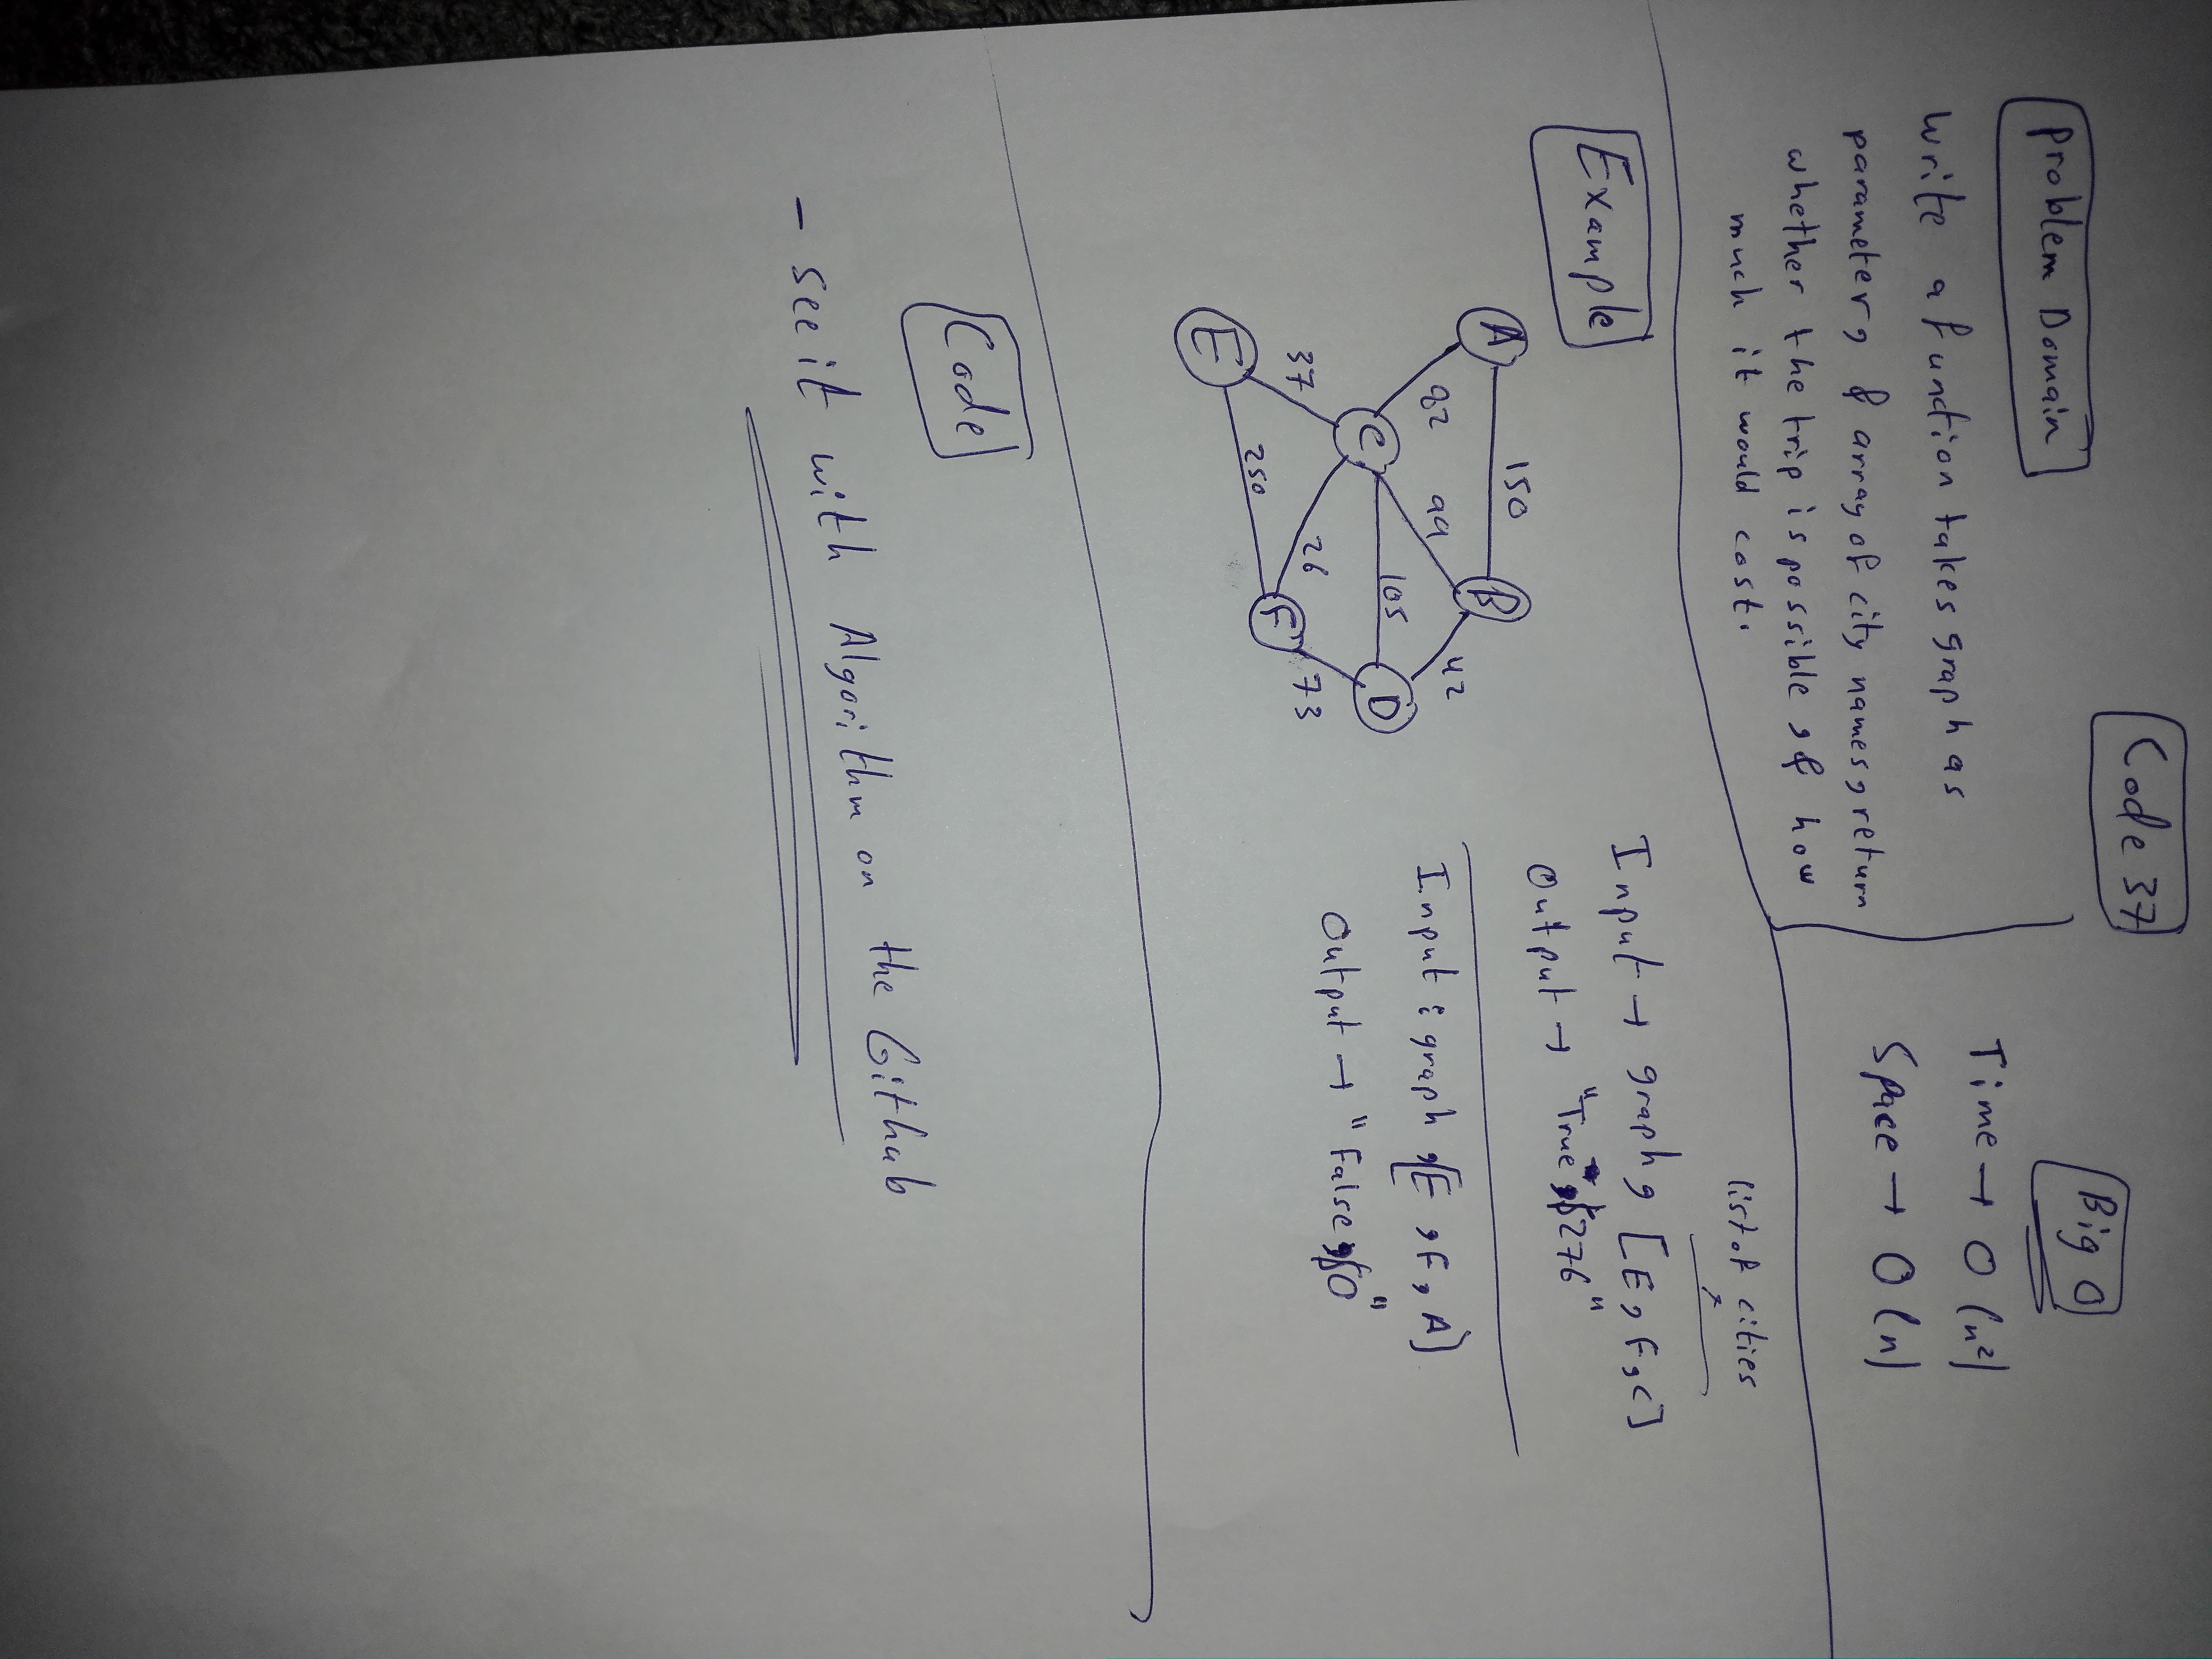 Code 37
Problem Domain
Write a function takes graph as
parameter, & array of city names, return
whether the trip is possible, & how
much it would cost.
Big O
Time → O(n²)
Space → O(n)
Example
A
150
B
82
99
42
C
105
D
37
26
73
E
250
F
list of cities
Input → graph, [E, F, C]
Output → "True, $276"
Input : graph, [E, F, A]
Output → "False, $0"
Code
- see it with Algorithm on the Github